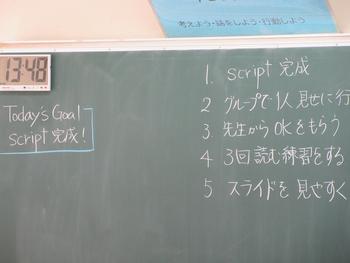 考えよう・話をしよう・行動しよう
13:48
Today's Goal
script 完成!
1. script 完成
2 グループで1人見せに行
3. 先生からOKをもらう
4 3回読む練習をする
5 スライドを見やすく